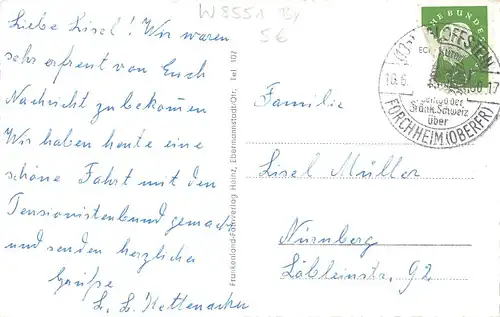 W8551 By
56
Liebe Lisel! Wir waren
sehr erfreut von Euch
Nachricht zu bekommen
Wir haben heute eine
schöne Fahrt mit den
Pensionistenbund gemacht
und senden herzliche
Grüße
L. L. Kettenacker
Frankenland-Fotoverlag Heinz, Ebermannstadt/Ofr. Tel 102
Familie
Lisel Müller
Nürnberg
Löbleinstr. 92
(13a)
16.6.
-17
Fränk. Schweiz
über
FORCHHEIM (OBERFR)